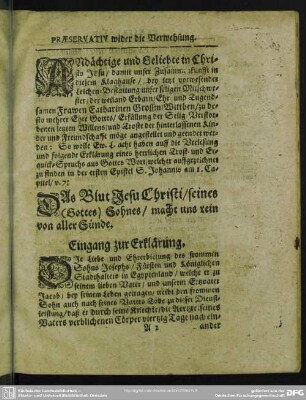 PRÆSERVATIV wider die Verwehung.
ANdächtige und Geliebte in Chri-
sto Jesu / damit unser Zusamm. kunfft in
diesem Klaghause / bey jetz vorwesender
Leichen-Bestattung unser seligen Mitschwe-
ster / der weiland Erbarn / Ehr- und Tugend-
samen Frawen Catharinen Grossin Witben / ja de-
sto mehrer Ehre Gottes / Erfüllung der Selig Verstor-
benen letzten Willens / und Troste der hinterlassenen Kin-
der und Freundschafft möge angestellet und geendet wer-
den: So wolle Ew. L. acht haben auff die Verlesung
und folgende Erklärung eines hertzlichen Trost- und Er-
quick-Spruchs aus Gottes Wort / welcher auffgezeichnet
zu finden in der ersten Epistel S. Johannis am 1. Ca-
pittel / v. 7:
DAs Blut Jesu Christi / seines
(Gottes) Sohnes / macht uns rein
von aller Sünde.
Eingang zur Erklärung.
DIe Liebe und Ehrerbietung des frommen
Sohns Josephs / Fürsten und Königlichen
Stadthalters in Egyptenland / welche er zu
seinem lieben Vater / und unserem Ertzvater
Jacob / bey seinem Leben getragen / treibt den frommen
Sohn auch nach seines Vaters Tode zu dieser Dienst-
leistung / daß er durch seine Knechte / die Aertzte seines
Vaters verblichenen Cörper viertzig Tage nach ein-
A 2 ander